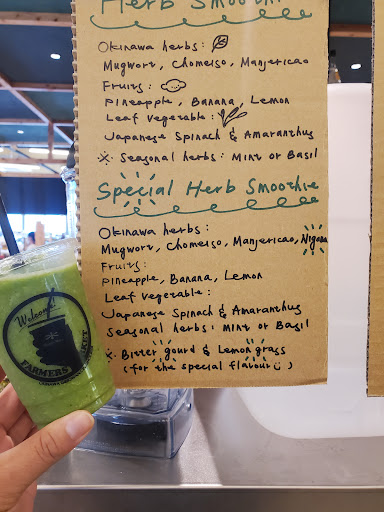 Herb Smoothie
Okinawa herbs:
Mugwort, Chomeiso, Manjericao
Fruits:
Pineapple, Banana, Lemon
Leaf vegetable:
Japanese Spinach & Amaranthus
※ Seasonal herbs: Mint or Basil
Special Herb Smoothie
Okinawa herbs:
Mugwort, Chomeiso, Manjericao, Nigana
Fruits:
Pineapple, Banana, Lemon
Leaf vegetable:
Japanese Spinach & Amaranthus
Seasonal herbs: Mint or Basil
※ Bitter gourd & Lemon grass
(for the special flavour)
Welcome!
FARMERS MARKET